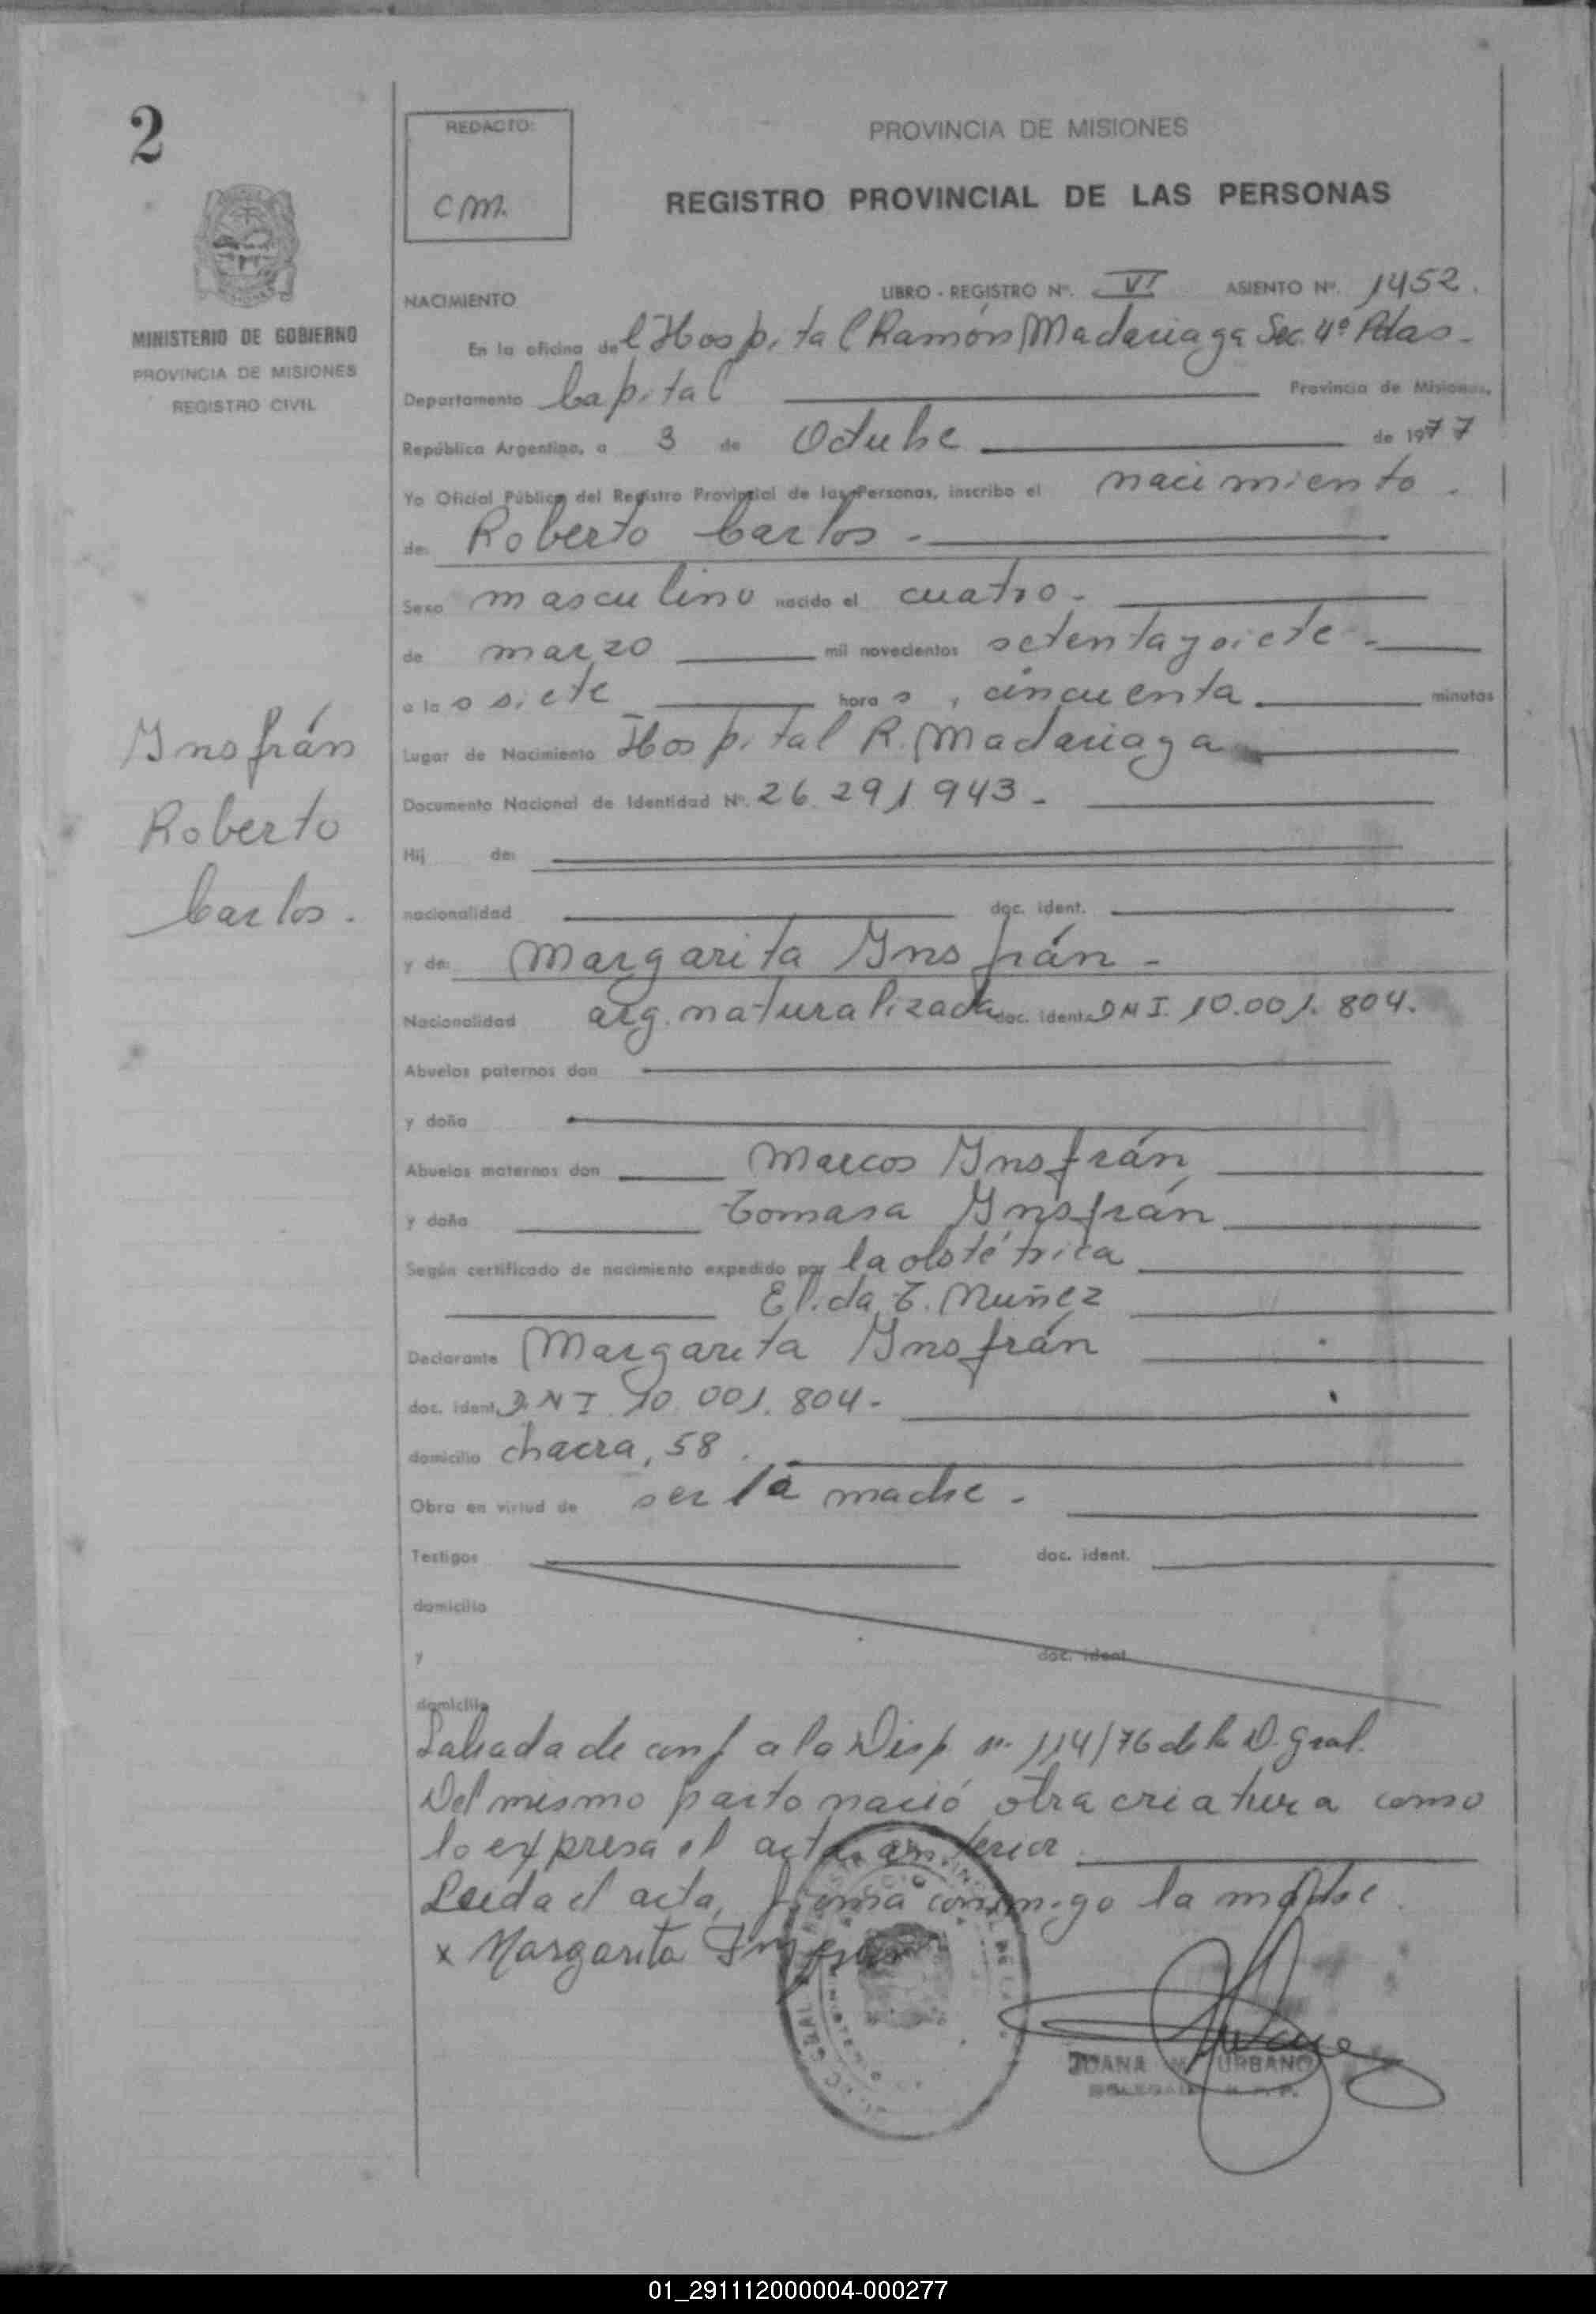 2
REDACTO:
C M.
PROVINCIA DE MISIONES
REGISTRO PROVINCIAL DE LAS PERSONAS
MINISTERIO DE GOBIERNO
PROVINCIA DE MISIONES
REGISTRO CIVIL
NACIMIENTO LIBRO - REGISTRO Nº. VI ASIENTO Nº. 1452.
En la oficina del Hospital Ramón Madariaga Sec. 4º Pdas-
Departamento Capital Provincia de Misiones,
República Argentina, a 3 de Octubre de 1977
Yo Oficial Público del Registro Provincial de las Personas, inscribo el nacimiento.
de: Roberto Carlos.-
Sexo masculino nacido el cuatro.-
de marzo mil novecientos setenta y siete.-
a las siete horas, cincuenta minutos
Insfrán
Roberto
Carlos.
Lugar de Nacimiento Hospital R. Madariaga
Documento Nacional de Identidad Nº. 26.291.943.-
Hij de:
nacionalidad doc. ident.
y de: Margarita Insfrán-
Nacionalidad arg. naturalizada doc. ident. DNI. 10.001.804.
Abuelos paternos don
y doña
Abuelos maternos don Marcos Insfrán
y doña Tomasa Insfrán
Según certificado de nacimiento expedido por la obstétrica
Elida T. Muñez
Declarante Margarita Insfrán
doc. ident. DNI 10.001.804.-
domicilio chacra, 58.
Obra en virtud de ser la madre.-
Testigos doc. ident.
domicilio
y doc. ident.
domicilio
Labrada de conf a la Disp nº 114/76 de la D. Gral.
Del mismo parto nació otra criatura como
lo expresa el acta anterior
Leída el acta, firma conmigo la madre.
x Margarita Insfran
JUANA URBANO
01_291112000004-000277